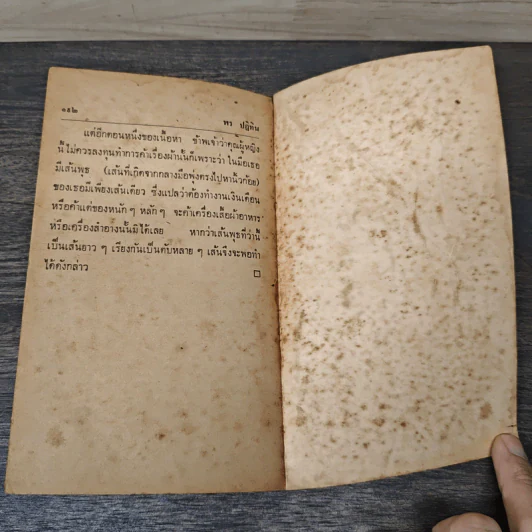 ๑๙๒
พร ปฏิทิน
แต่อีกตอนหนึ่งของเนื้อหา ข้าพเจ้าว่าคุณผู้หญิง
นี้ไม่ควรลงทุนทำการค้าเรื่องผ้านั้นก็เพราะว่า ในมือเธอ
มีเส้นพุธ (เส้นที่เกิดจากกลางมือพุ่งตรงไปหานิ้วก้อย)
ของเธอมีเพียงเส้นเดียว ซึ่งแปลว่าต้องทำงานเงินเดือน
หรือค้าแต่ของหนัก ๆ หลัก ๆ จะค้าเครื่องเสื้อผ้าอาหาร
หรือเครื่องสำอางนั้นมิได้เลย หากว่าเส้นพุธที่ว่านี้
เป็นเส้นยาว ๆ เรียงกันเป็นตับหลาย ๆ เส้นจึงจะพอทำ
ได้ดังกล่าว